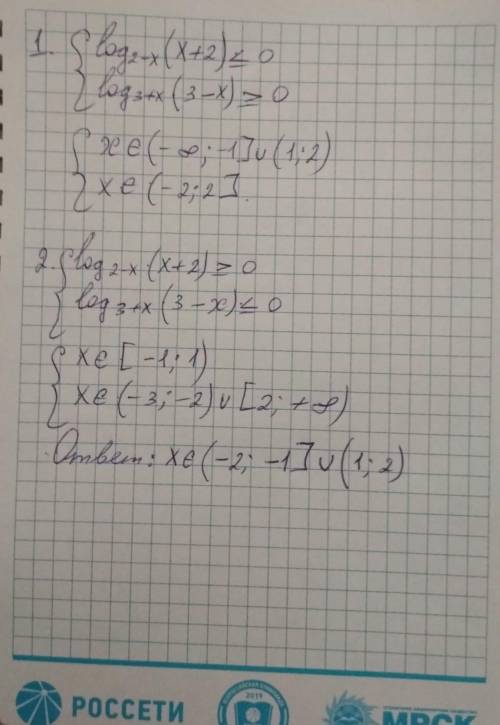 1. { log₂₋ₓ(x+2) ≤ 0
log₃₊ₓ(3-x) ≥ 0
{ x ∈ (-∞; -1] ∪ (1; 2)
x ∈ (-2; 2].
2. { log₂₋ₓ(x+2) ≥ 0
log₃₊ₓ(3-x) ≤ 0
{ x ∈ [-1; 1)
x ∈ (-3; -2) ∪ [2; +∞)
Ответ: x ∈ (-2; -1] ∪ (1; 2)
РОССЕТИ
2019
МРСК